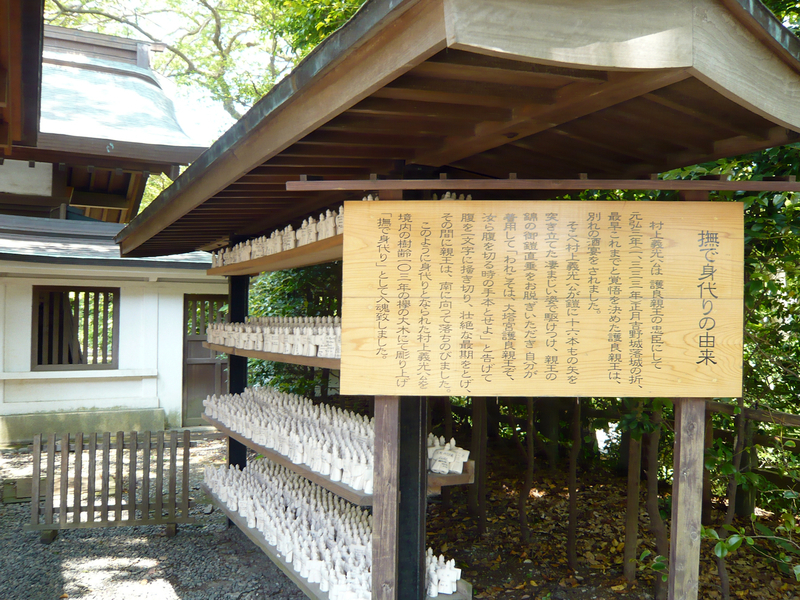 撫で身代りの由来
村上義光公は護良親王の忠臣にして
元弘三年（一三三三年）正月吉野城落城の折、
最早これまでと覚悟を決めた護良親王は、
別れの酒宴をされました。
そこへ村上義光公が鎧に十六本もの矢を
突き立てた凄まじい姿で駆けつけ、親王の
錦の御鎧直垂をお脱ぎいただき自分が
着用して「われこそは、大塔宮護良親王ぞ、
汝ら腹を切る時の手本とせよ」と告げて
腹を一文字に掻き切り、壮絶な最期をとげ、
その間に親王は、南に向って落ちのびました。
このように身代りとなられた村上義光公を
境内の樹齢一〇三年の欅の大木にて彫り上げ
「撫で身代り」として入魂致しました。